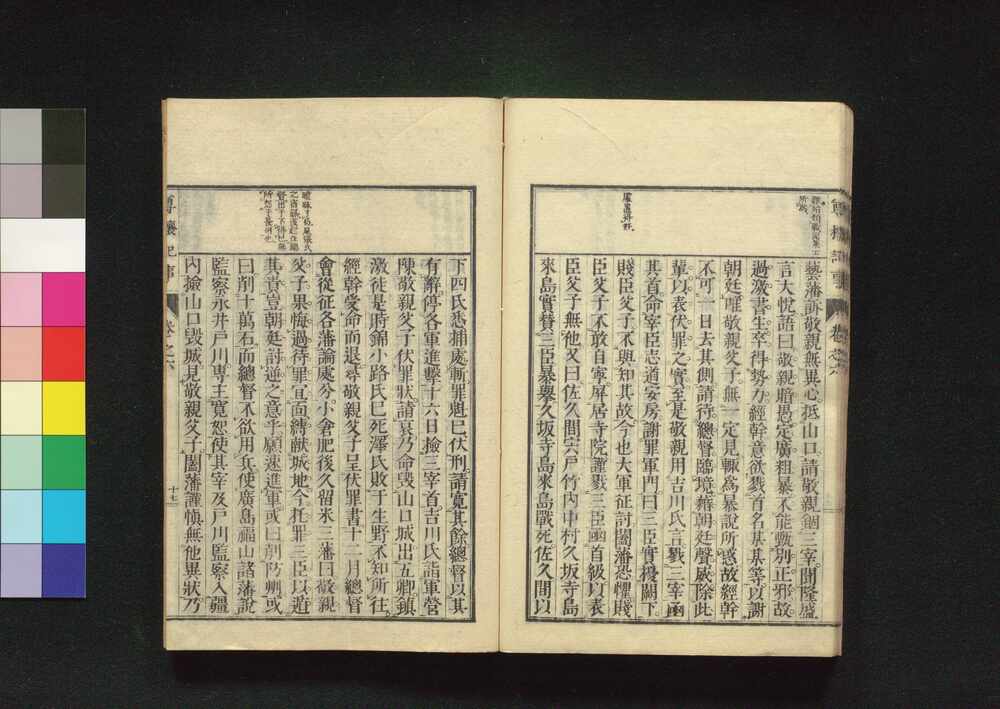 藝藩訴敬親無異心抵山口請敬親錮三宰聞隆盛
言大悅語曰敬親暗愚定廣粗暴不能甄別正邪故
過激書生卒得勢力經幹意欲戮首名某某等以謝
朝廷唯敬親父子無一定見輙爲暴說所惑故經幹
不可一日去其側請待總督臨境藉朝廷聲威除此
輩以表伏罪之實至是敬親用吉川氏言戮三宰函
其首命宰臣志道安房謝罪軍門曰三臣實擾闕下
賤臣父子不與知其故今也大軍征討闔藩恐懼賤
臣父子不敢自寧屏居寺院謹戮三臣函首級以表
臣父子無他又曰佐久間宍戶竹內中村久坂寺島
來島實贊三臣暴擧久坂寺島來島戰死佐久間以
尊攘紀事
卷之六
下四氏悉捕處斬罪魁巳伏刑請寬其餘總督以其
有辭停各軍進擊十六日撿三宰首吉川氏詣軍營
陳敬親父子伏罪狀請哀乃命毀山口城出五卿鎭
激徒是時錦小路氏巳死澤氏敗于生野不知所往
經幹受命而退尋敬親父子呈伏罪書十二月總督
會從征各藩論處分小倉肥後久留米三藩曰敬親
父子果悔過待罪宜面縛献城地今托罪三臣以遁
其責豈朝廷討逆之意乎願速進軍或曰削防州或
曰削十萬石而總督不欲用兵使廣島福山諸藩說
監察永井戶川專主寬恕使其宰及戶川監察入疆
內撿山口毀城見敬親父子闔藩謹愼無他異狀乃
尊攘紀事
卷之六
十七